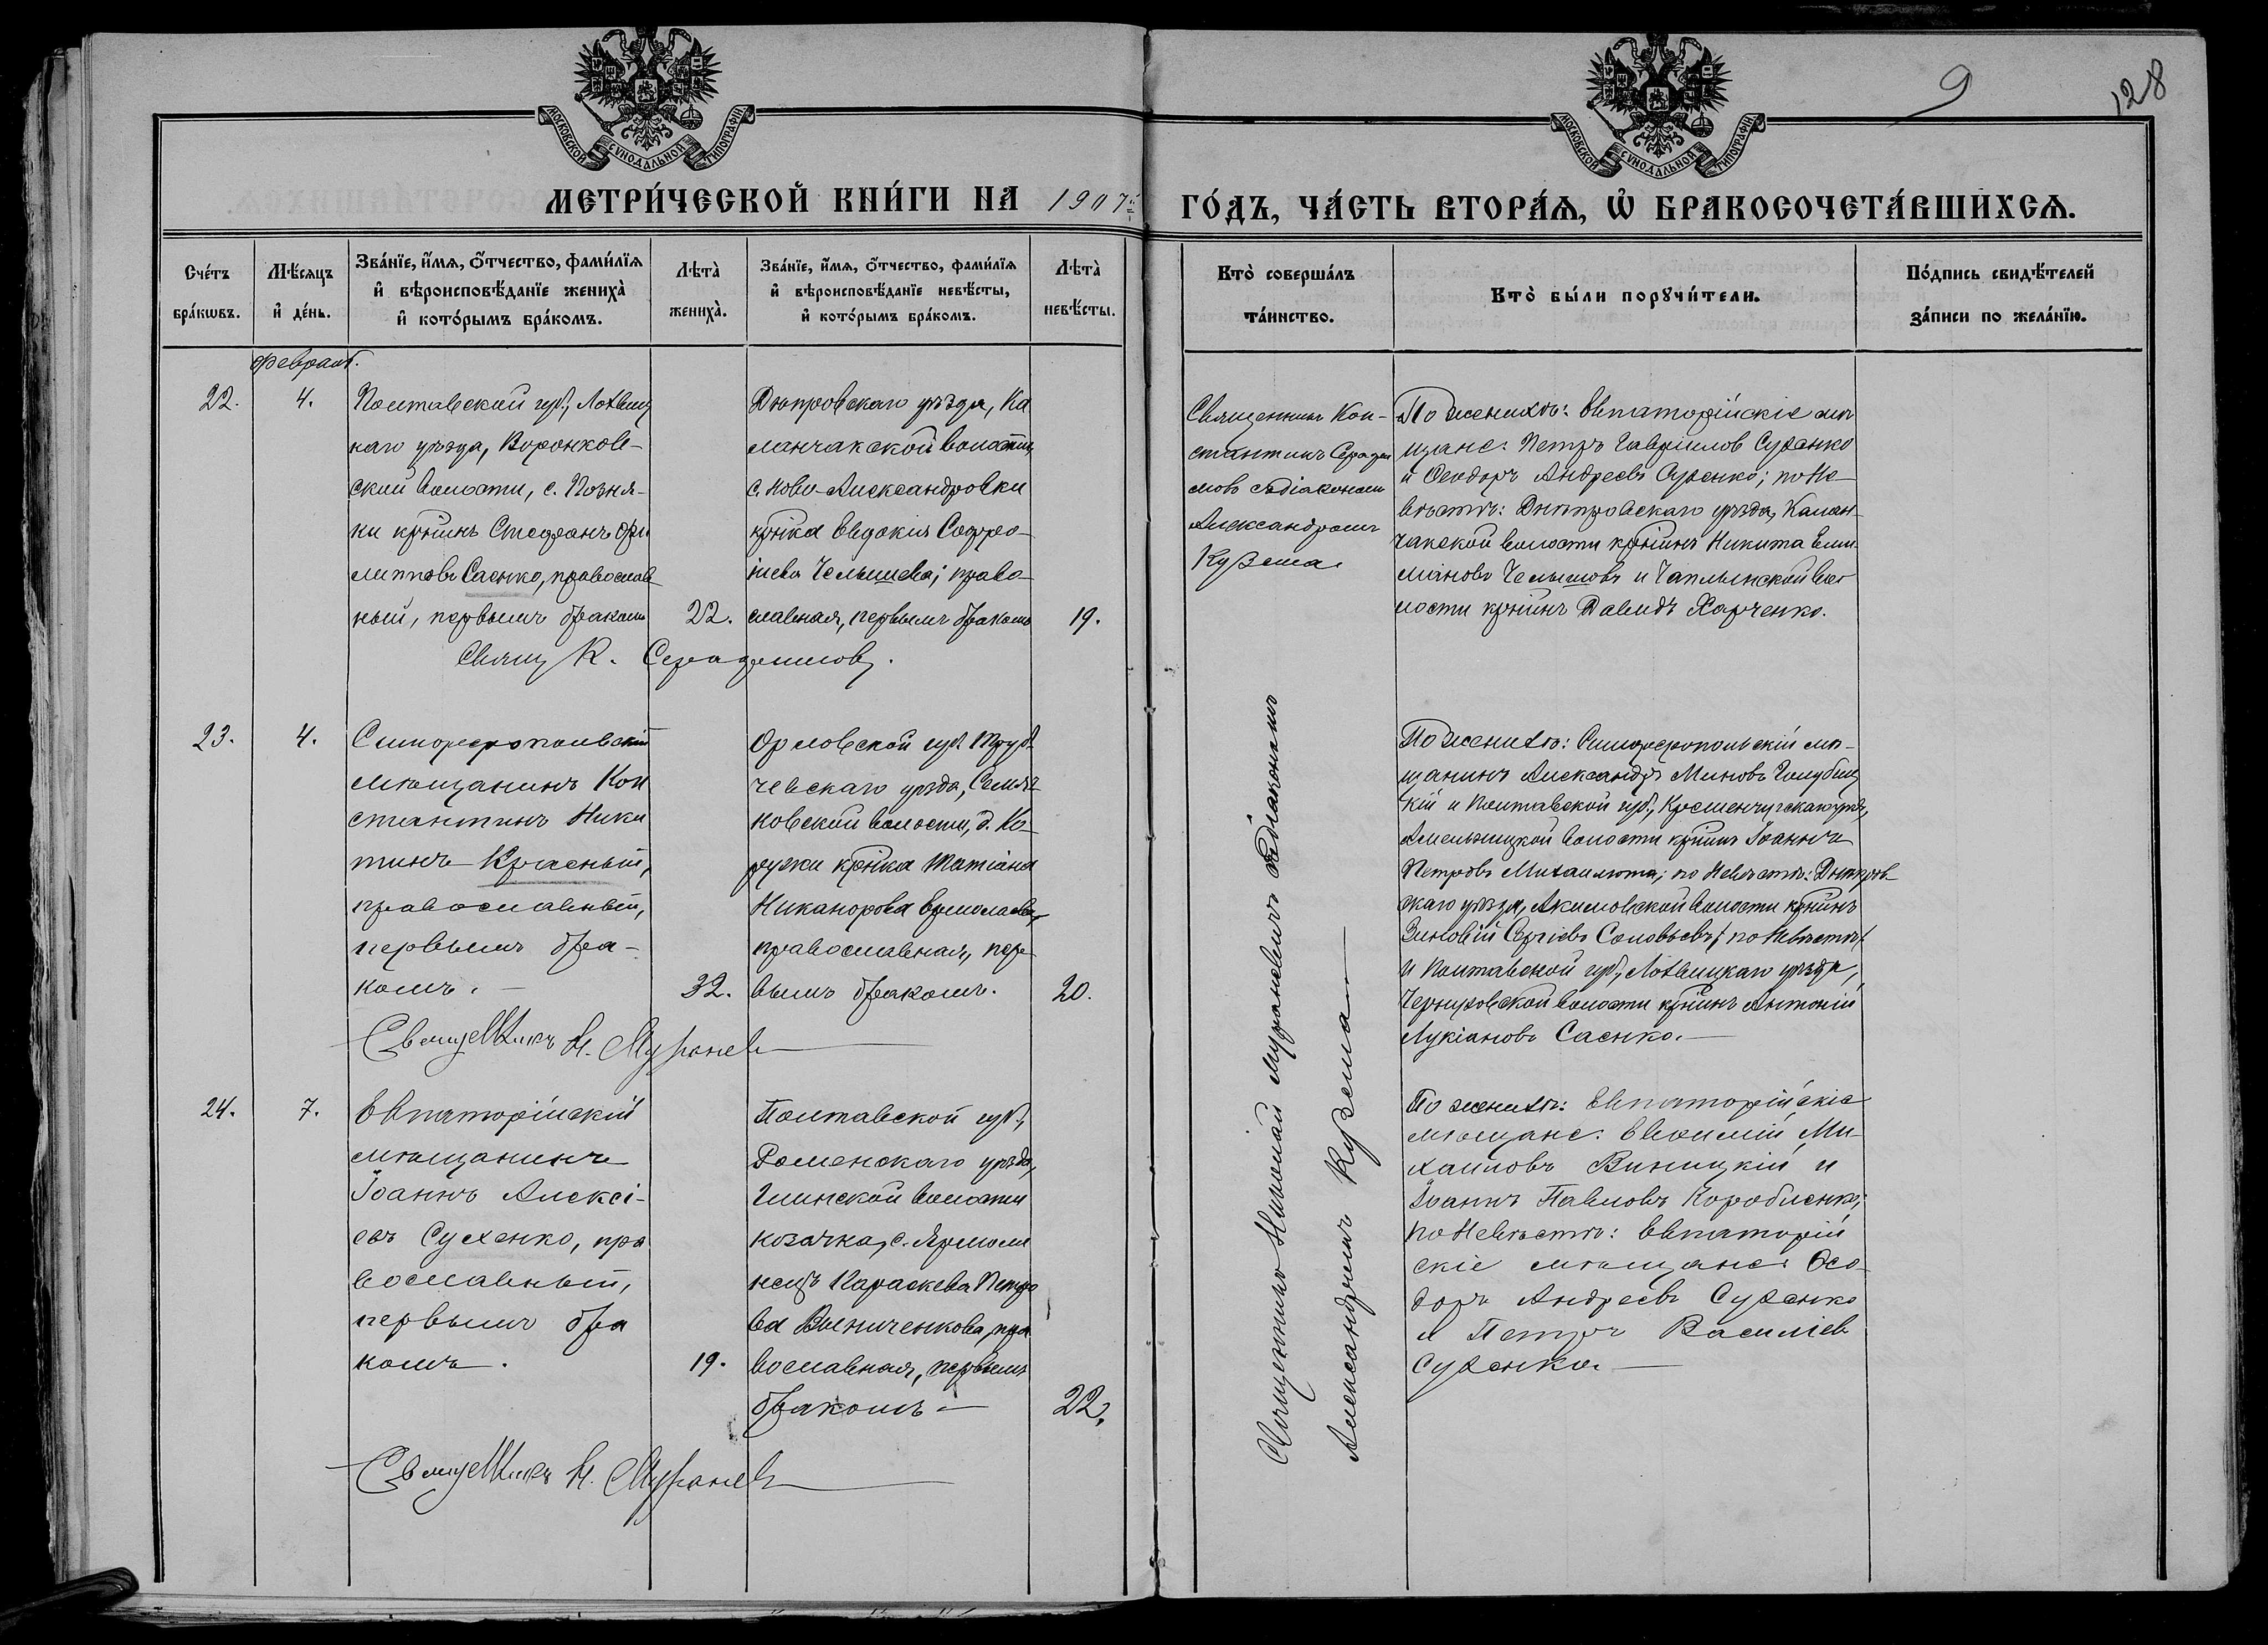 МОСКОВСКОЙ СУНОДАЛЬНОЙ ТИПОГРАФІИ
МОСКОВСКОЙ СУНОДАЛЬНОЙ ТИПОГРАФІИ
9
128
МЕТРИ́ЧЕСКОЙ КНИ́ГИ НА 1907й
ГО́ДЪ, ЧА́СТЬ ВТОРА́Ѧ, Ѿ БРАКОСОЧЕТА́ВШИХСѦ.
Сче́тъ бра́кѡвъ.
Мѣ́сѧцъ и де́нь.
Зва́нїе, и́мѧ, о́тчество, фами́лїѧ и вѣроисповѣ́данїе жениха̀ и кото́рымъ бра́комъ.
Лѣта̀ жениха̀.
Зва́нїе, и́мѧ, о́тчество, фами́лїѧ и вѣроисповѣ́данїе невѣ́сты, и кото́рымъ бра́комъ.
Лѣта̀ невѣ́сты.
Кто̀ соверша́лъ та́инство.
Кто̀ бы́ли порꙋчи́тели.
По́дпись свидѣ́телей за́писи по жела́нїю.
Февраль.
22.
4.
Полтавской губ., Лохвиц
каго уѣзда, Воронков-
ской волости, с. Позня-
ки кр̃нинъ Стефанъ Фи-
липповъ Саенко, православ
ный, первымъ бракомъ
22.
Днѣпровскаго уѣзда, Ка
ланчакской волости,
с. Ново-Александровки
кр̃нка Евдокія Софро-
ніева Челышева; право-
славная, первымъ бракомъ
19.
Свящ. К. Серафимовъ.
Священникъ Кон-
стантинъ Серафи
мовъ съ діакономъ
Александромъ
Кузема
По женихѣ: Евпаторійскіе мѣ
щане: Петръ Гавріиловъ Сухенко
и Ѳеодоръ Андреевъ Сухенко; по не-
вѣстѣ: Днѣпровскаго уѣзда, Калан-
чакской волости кр̃нинъ Никита
Челышовъ и Чаплынской во
лости кр̃нинъ Давидъ Харченко.
23.
4.
Симферопольскій
мѣщанинъ Кон
стантинъ Ники
тинъ Красный,
православный,
первымъ бра-
комъ.
32.
Орловской губ. Труб-
чевскаго уѣзда, Семяч-
ковской волости, д. Ко-
ручки кр̃нка Татіана
Никанорова Ермолаева,
православная, пер
вымъ бракомъ.
20.
Священникъ Н. Муранев
Священникъ Николай Мураневичъ съ діакономъ
Александромъ Куземa
По женихѣ: Симферопольскій мѣ-
щанинъ Александръ Миновъ Голубиц
кій и Полтавской губ., Кременчугскаго уѣз.,
волости кр̃нинъ Іоаннъ
Петровъ Михаилюта; по невѣстѣ: Днѣпров-
скаго уѣзда, Акимовской волости кр̃нинъ
Зиновій Сергіевъ Соловьевъ / по невѣстѣ /
и Полтавской губ., Лохвицкаго уѣзда,
Чернуховской волости кр̃нинъ Антоній
Лукіановъ Саенко.
24.
7.
Евпаторійскій
мѣщанинъ
Іоаннъ Алексі-
евъ Сухенко, пра
вославный,
первымъ бра
комъ.
19.
Полтавской губ.,
Роменскаго уѣзда,
Глинской волости
козачка, с. Ярмоли
нецъ Параскева Петро
ва Винниченкова, пра
вославная, первымъ
бракомъ
22.
Священникъ Н. Муранев
По женихѣ: Евпаторійскіе
мѣщане: Евѳимій Ми-
хаиловъ Виницкій и
Іоаннъ Павловъ Коробленко;
по невѣстѣ: Евпаторій
скіе мѣщане: Ѳео-
доръ Андреевъ Сухенко
и Петръ Василіев
Сухенко.